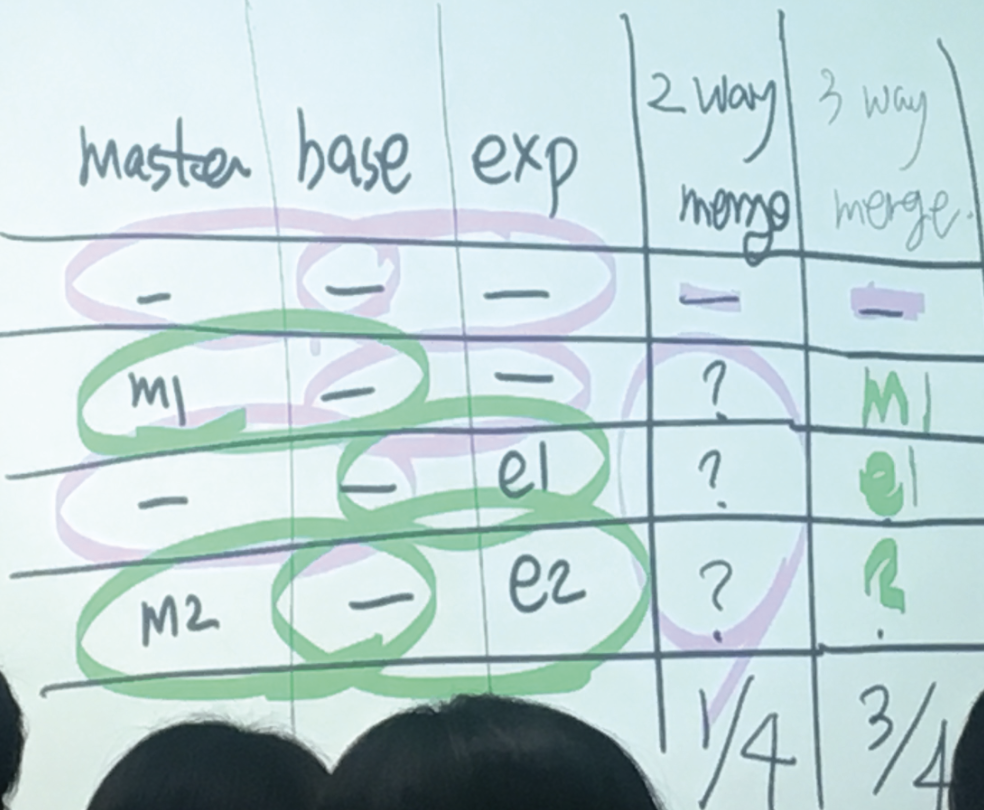 master base exp 2 way merge 3 way merge.
— — — — —
m1 — — ? m1
— — e1 ? e1
m2 — e2 ? ?
1/4 3/4